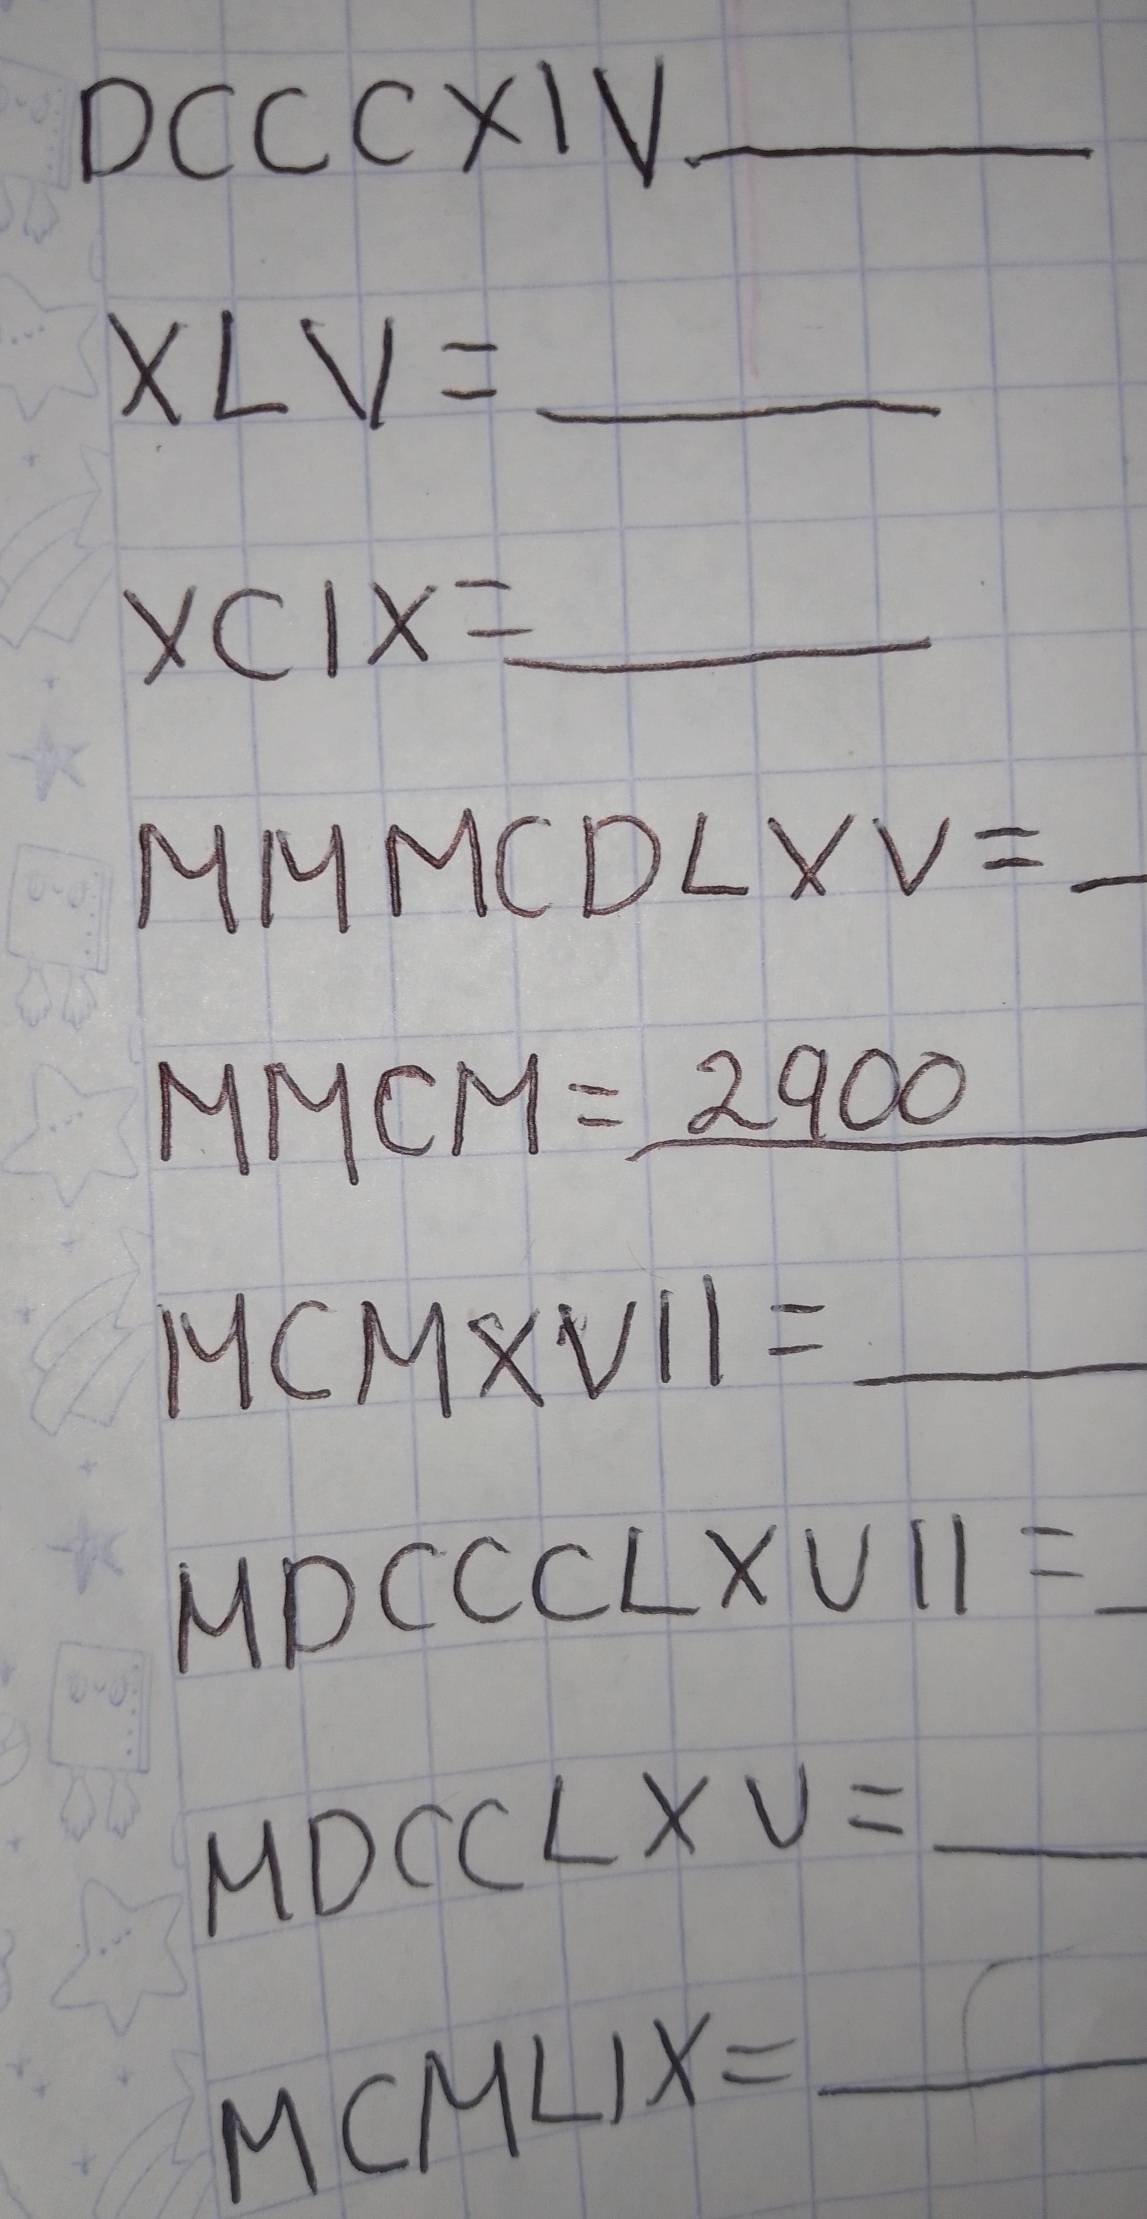 DCCCXIV
XLV =
XCIX =
MMMCDLXV =
MMCM = 2900
MCMXVII =
MDCCCLXVII =
MDCCLXV =
MCMLIX =